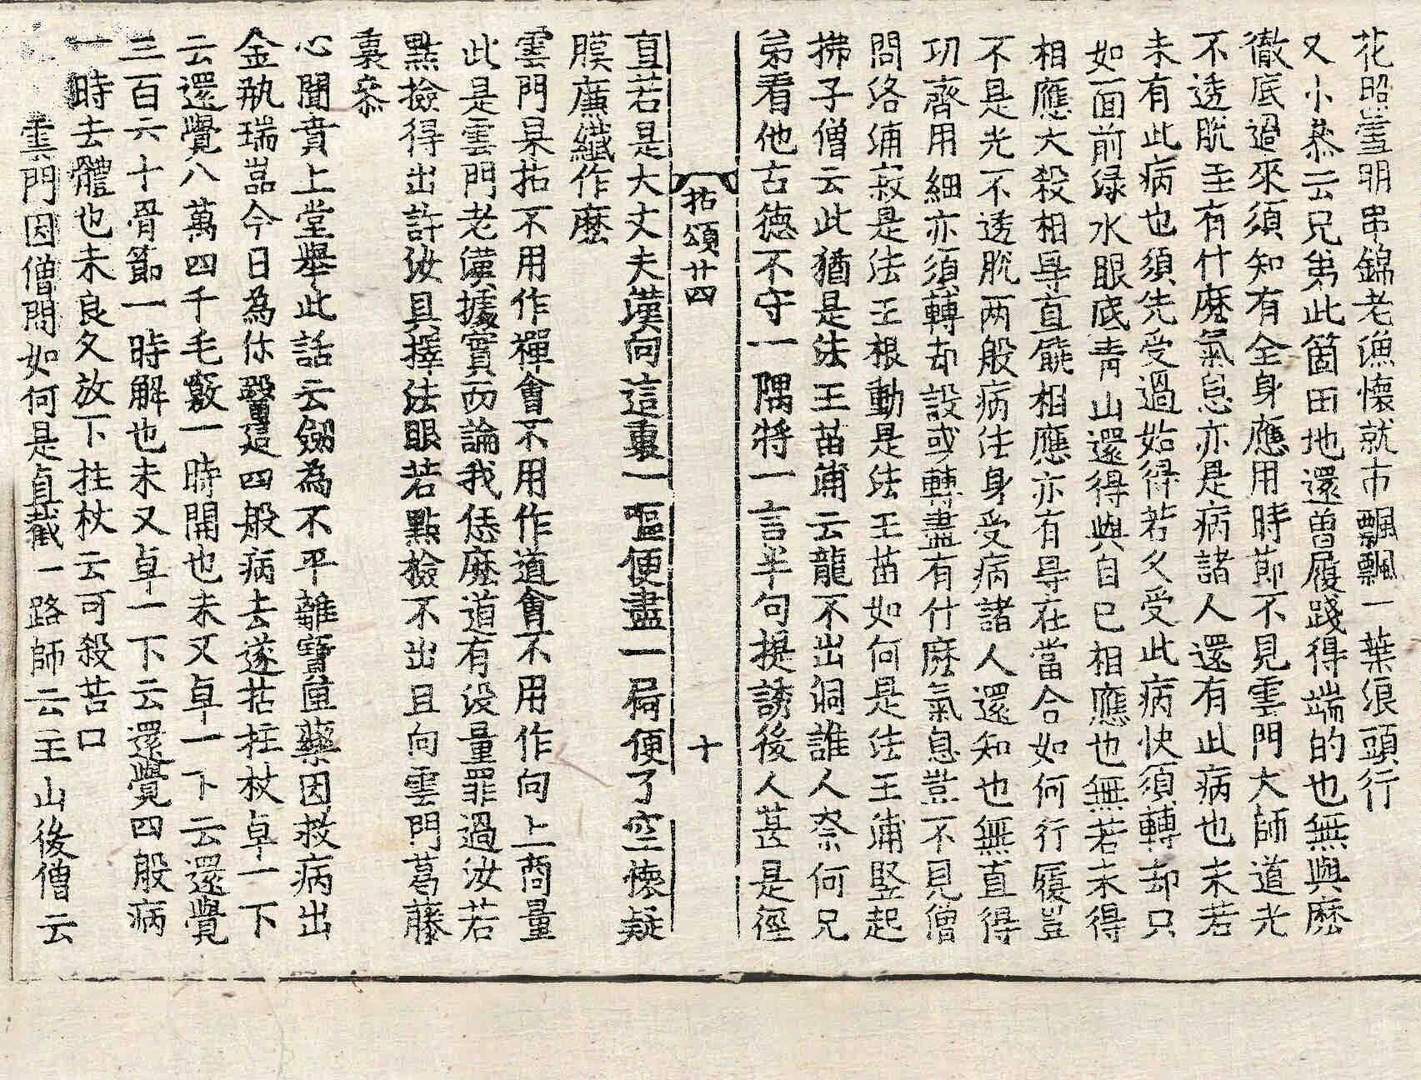 花照雪明串錦老漁懷就市飄飄一葉浪頭行
又小叅云兄弟此箇田地還曾履踐得端的也無與麽
徹底過來須知有全身應用時節不見雲門大師道光
不透脫至有什麽氣息亦是病諸人還有此病也未若
未有此病也須先受過始得若久受此病快須轉却只
如面前緑水眼底青山還得與自己相應也無若未得
相應大殺相辱直饒相應亦有辱在當合如何行履豈
不是光不透脫两般病任身受病諸人還知也無直得
功齊用細亦須轉却設或轉盡有什麽氣息豈不見僧
問洛浦叔是法王根動是法王苗如何是法王浦竪起
拂子僧云此猶是法王苗浦云龍不出洞誰人奈何兄
弟看他古德不守一隅將一言半句提誘後人甚是徑
拈頌廿四 十
直若是大丈夫漢向這裏一嘔便盡一屙便了空懷疑
膜廉纖作麽
雲門杲拈不用作禪會不用作道會不用作向上商量
此是雲門老漢據實而論我恁麽道有没量罪過汝若
點撿得出許汝具擇法眼若點撿不出且向雲門葛藤
裏叅
心聞賁上堂舉此話云劒為不平離寶匣藥因救病出
金瓶瑞嵓今日為你醫這四般病去遂拈拄杖卓一下
云還覺八萬四千毛竅一時開也未又卓一下云還覺
三百六十骨節一時解也未又卓一下云還覺四般病
一時去體也未良久放下拄杖云可殺苦口
雲門因僧問如何是直截一路師云主山後僧云